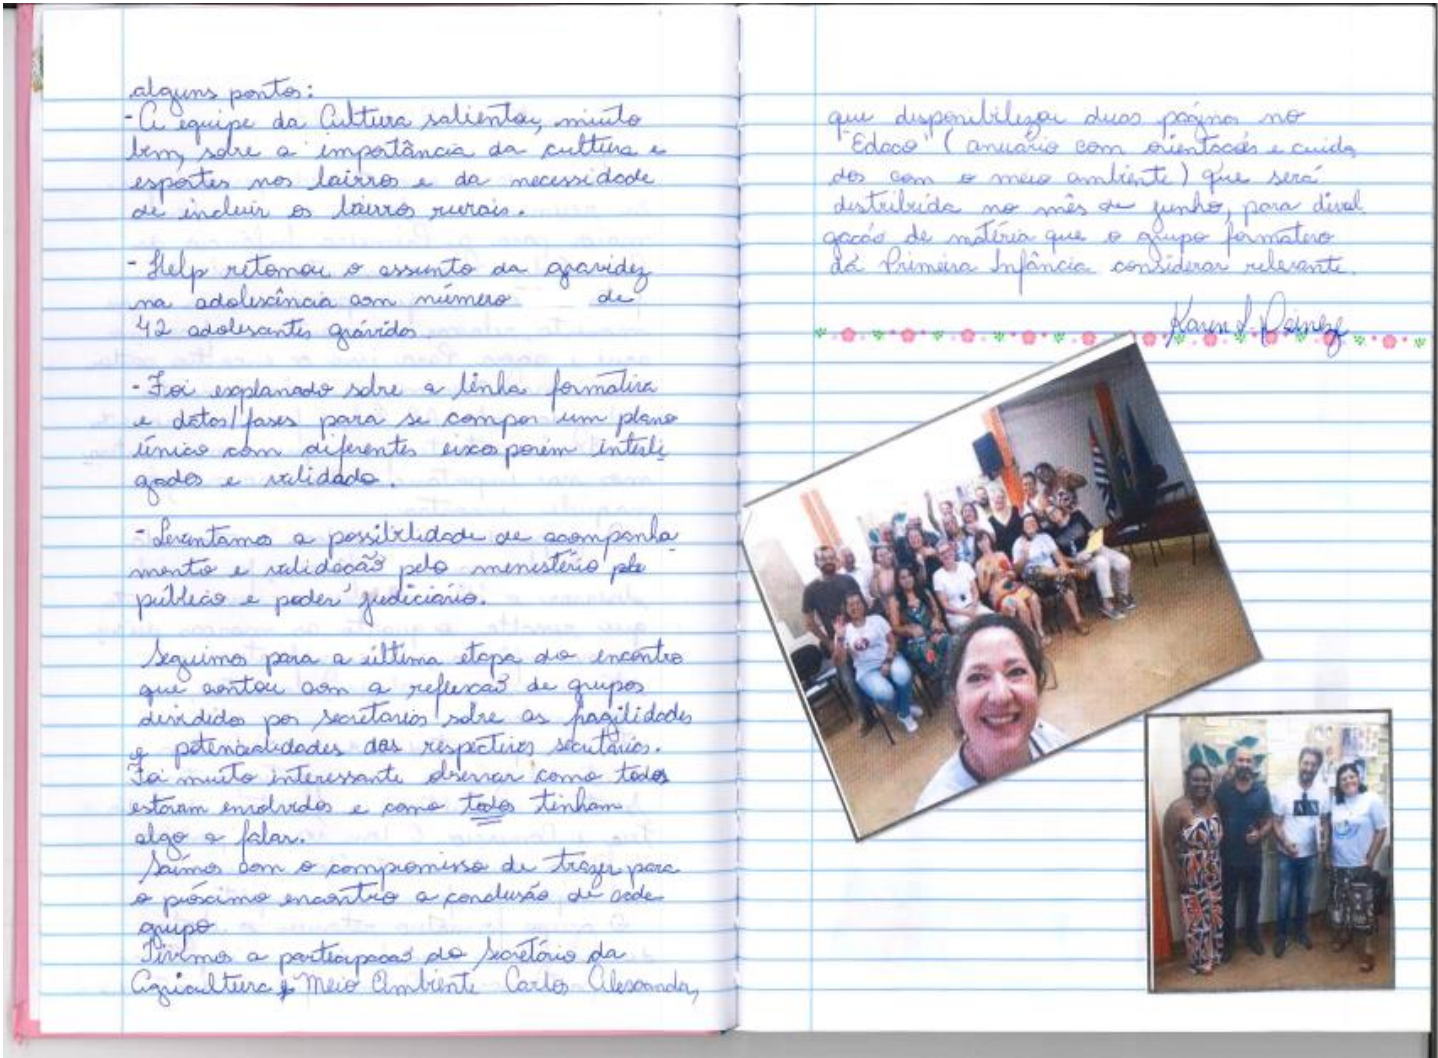 alguns pontos:
- A equipe da Cultura salientou, muito
bem, sobre a importância da cultura e
esportes nos bairros e da necessidade
de incluir os bairros rurais.
- Help retomou o assunto da gravidez
na adolescência com número de
42 adolescentes grávidas.
- Foi explanado sobre a linha formativa
e datas/fases para se compor um plano
único com diferentes eixos porém interli
gados e validado.
- Levantamos a possibilidade de acompanha
mento e validação pelo menistério
público e poder judiciário.
Seguimos para a última etapa do encontro
que contou com a reflexão de grupos
divididos por secretarias sobre as fragilidades
e potencialidades das respectivas secretarias.
Foi muito interessante observar como todos
estavam envolvidos e como todos tinham
algo a falar.
Saímos com o compromisso de trazer para
o próximo encontro a conclusão de cada
grupo.
Tivemos a participação do Secretário da
Agricultura e Meio Ambiente Carlos Alexandre,
que disponibilizou duas páginas no
"Edaco" (anuário com orientações e cuida
dos com o meio ambiente) que será
distribuida no mês de junho, para divul
gação de matéria que o grupo formativo
da Primeira Infância considerar relevante.
Karen